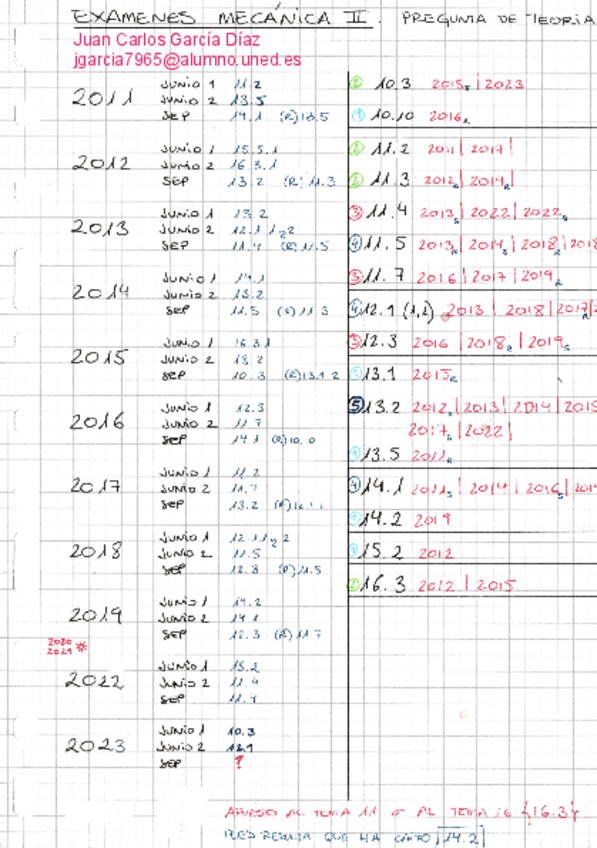 EXAMENES MECÁNICA II. PREGUNTA DE TEORIA
Juan Carlos García Díaz
jgarcia7965@alumno.uned.es
2011
JUNIO 1 11.2
JUNIO 2 13.5
SEP 14.1 (R) 13.5
2012
JUNIO 1 15.5.1
JUNIO 2 16.3.1
SEP 13.2 (R) 11.3
2013
JUNIO 1 13.2
JUNIO 2 12.1.1y2
SEP 11.4 (R) 11.5
2014
JUNIO 1 14.1
JUNIO 2 13.2
SEP 11.5 (R) 11.3
2015
JUNIO 1 16.3.1
JUNIO 2 13.2
SEP 10.3 (R) 13.1.2
2016
JUNIO 1 12.3
JUNIO 2 11.7
SEP 14.1 (R) 10.10
2017
JUNIO 1 11.2
JUNIO 2 11.7
SEP 13.2 (R)
2018
JUNIO 1 12.1.1y2
JUNIO 2 11.5
SEP 12.3 (R) 11.5
2019
JUNIO 1 14.2
JUNIO 2 14.1
SEP 12.3 (R) 11.7
2020
2021
2022
JUNIO 1 13.2
JUNIO 2 11.4
SEP 11.4
2023
JUNIO 1 10.3
JUNIO 2 12.1
SEP ?
② 10.3 2015s | 2023
① 10.10 2016R
② 11.2 2011 | 2017 |
② 11.3 2012R | 2014R |
③ 11.4 2013s | 2022 | 2022s
④ 11.5 2013R | 2014s | 2018 | 2018
③ 11.7 2016 | 2017 | 2019R
④ 12.1 (1,2) 2013 | 2018 | 2017R |
③ 12.3 2016 | 2018s | 2019s
① 13.1 2015R
⑤ 13.2 2012s | 2013 | 2014 | 2015
2017s | 2022 |
① 13.5 2011R
④ 14.1 2011s | 2014 | 2016s | 201
① 14.2 2019
① 15.2 2012
② 16.3 2012 | 2015
APUESTO AL TEMA 11 o AL TEMA 16 {16.3}
PUES RESULTA QUE HA CAIDO |14.2|